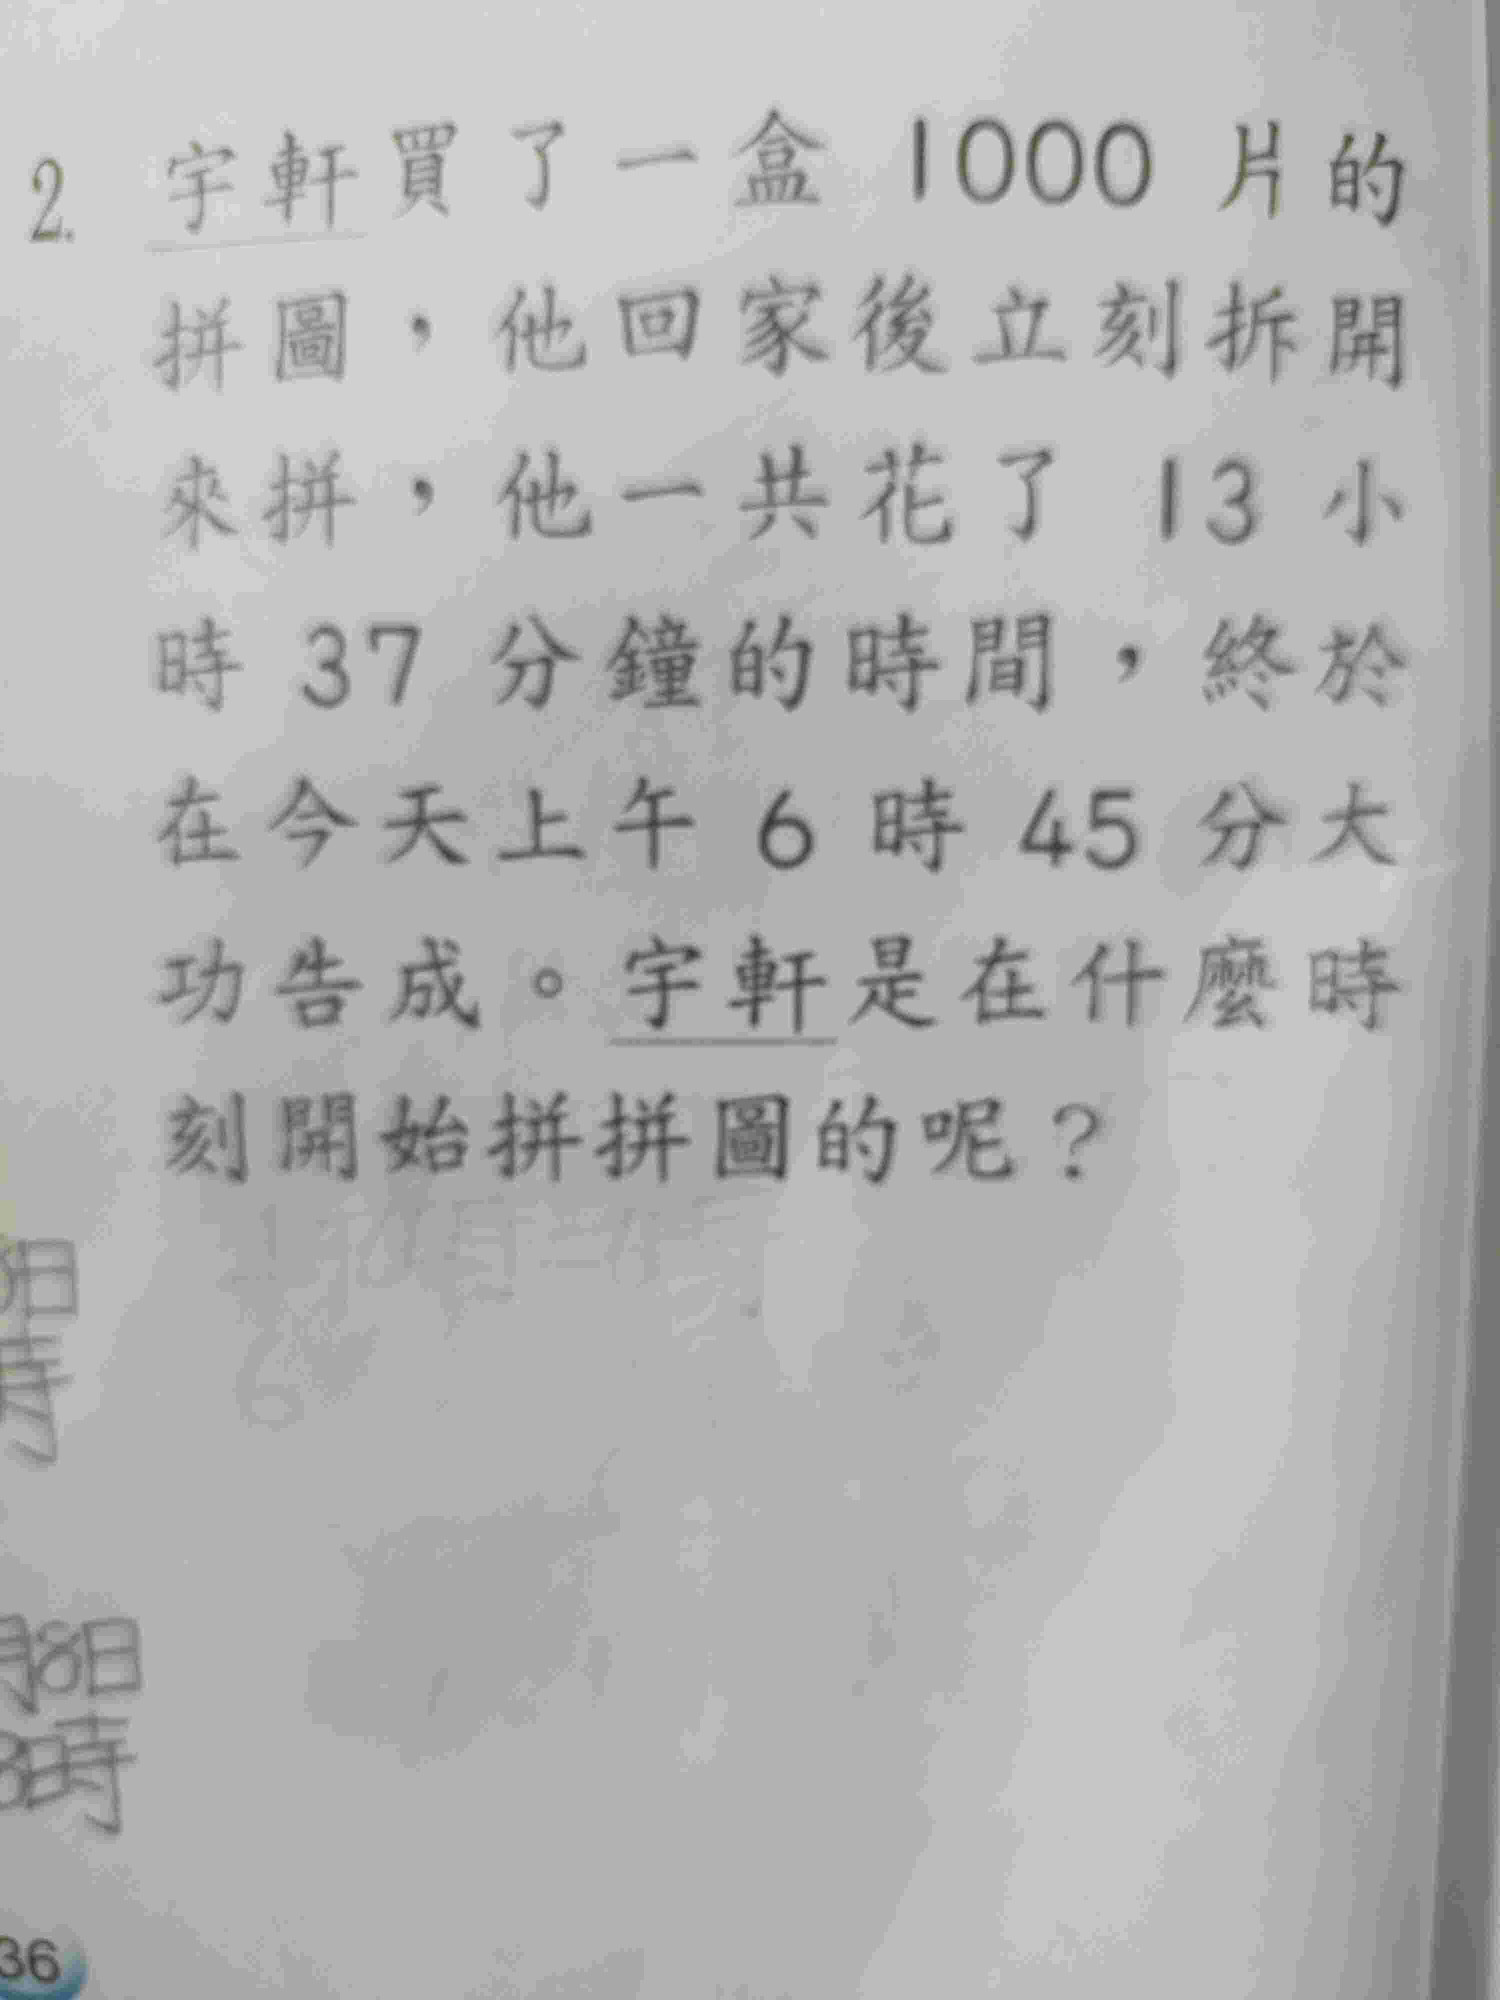 2. 宇軒買了一盒 1000 片的
拼圖，他回家後立刻拆開
來拼，他一共花了 13 小
時 37 分鐘的時間，終於
在今天上午 6 時 45 分大
功告成。宇軒是在什麼時
刻開始拼拼圖的呢？
日
時
月8日
時
36